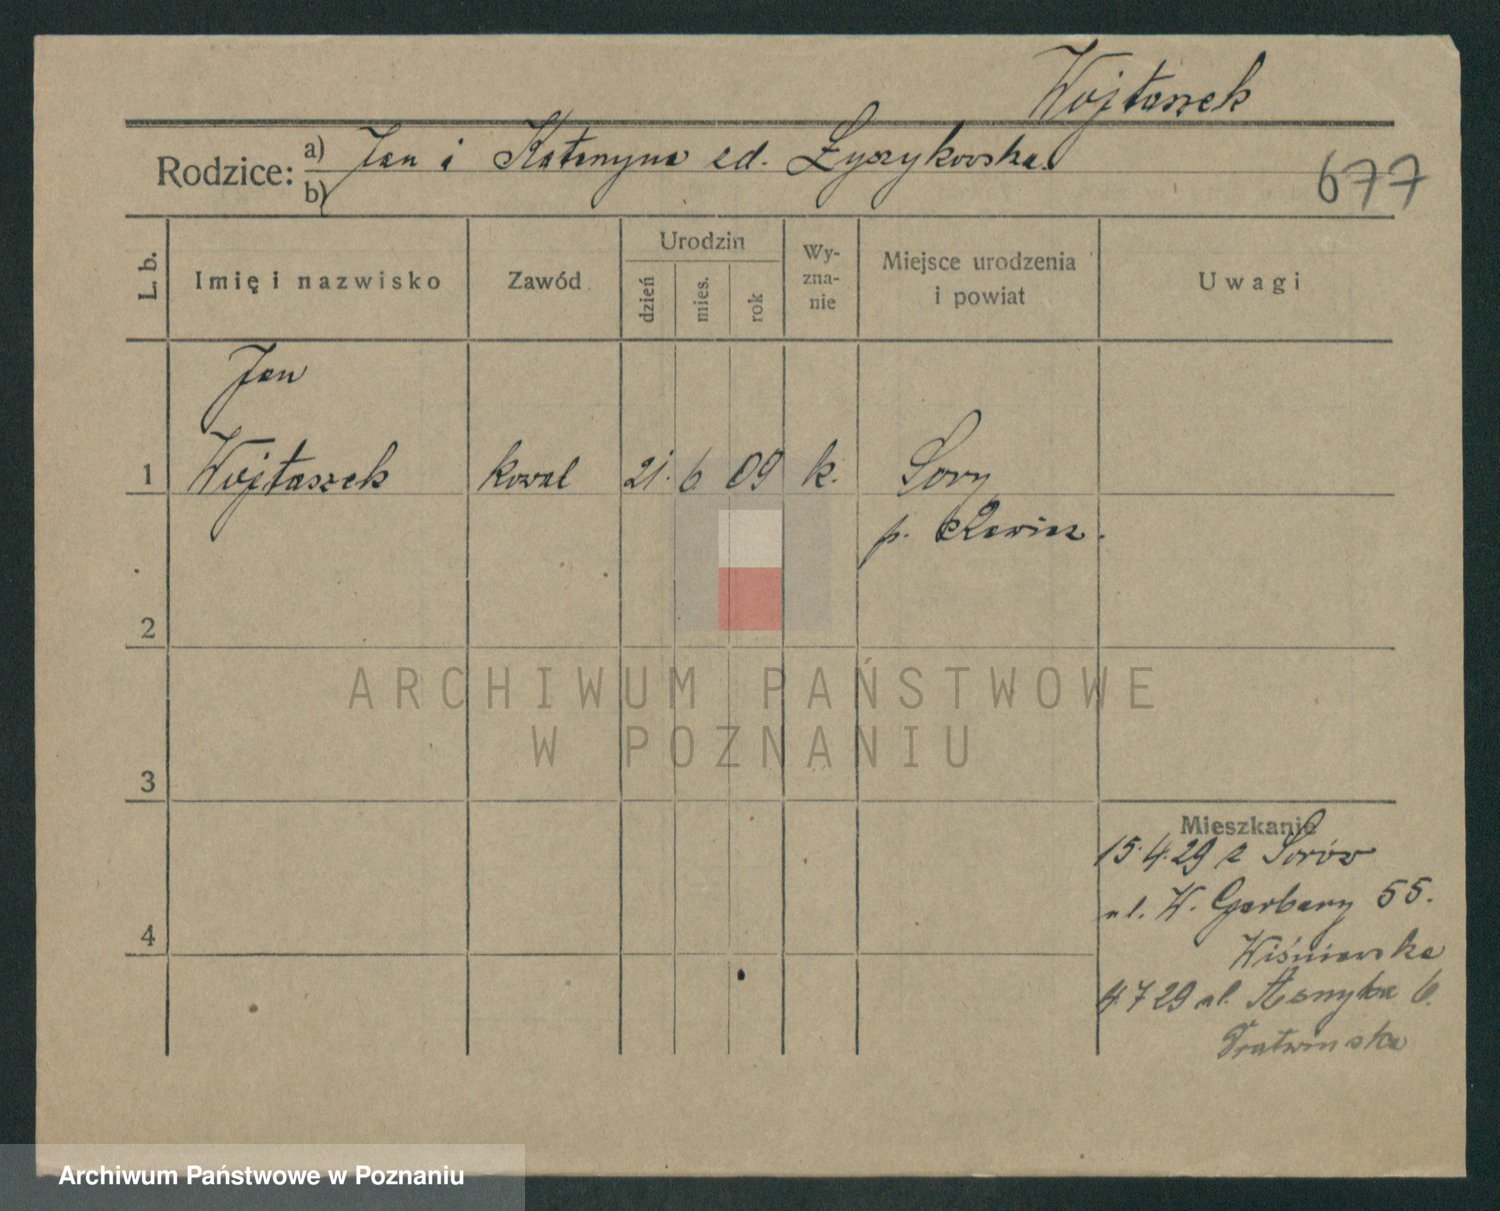 Wojtaszek
Rodzice: a) Jan i Katarzyna zd. Łyszykowska
b)
677
L. b.
Imię i nazwisko
Zawód
Urodzin
dzień
mies.
rok
Wy-
zna-
nie
Miejsce urodzenia
i powiat
Uwagi
Jan
1 Wojtaszek kowal 21. 6 09 k. Sowy
p. Rawicz.
2
ARCHIWUM PAŃSTWOWE
W POZNANIU
3
Mieszkanie
15.4.29 z
ul. W. Garbary 55.
4
Wiśniewska
4.7 29 ul. Asnyka 6.
Archiwum Państwowe w Poznaniu